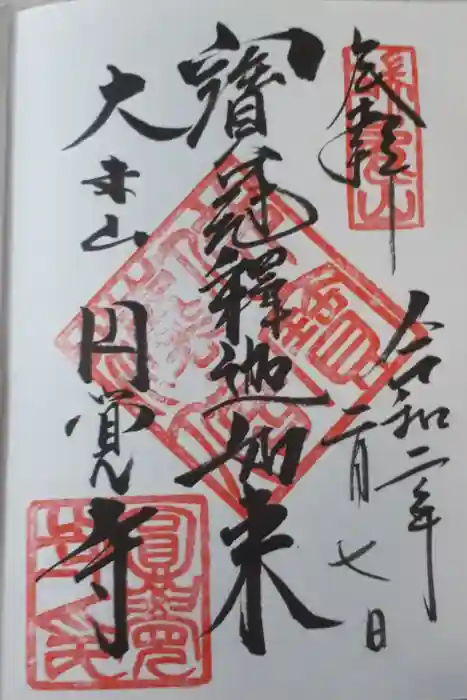 奉拝
令和二年
二月七日
寳冠釋迦如来
大本山
円覚寺